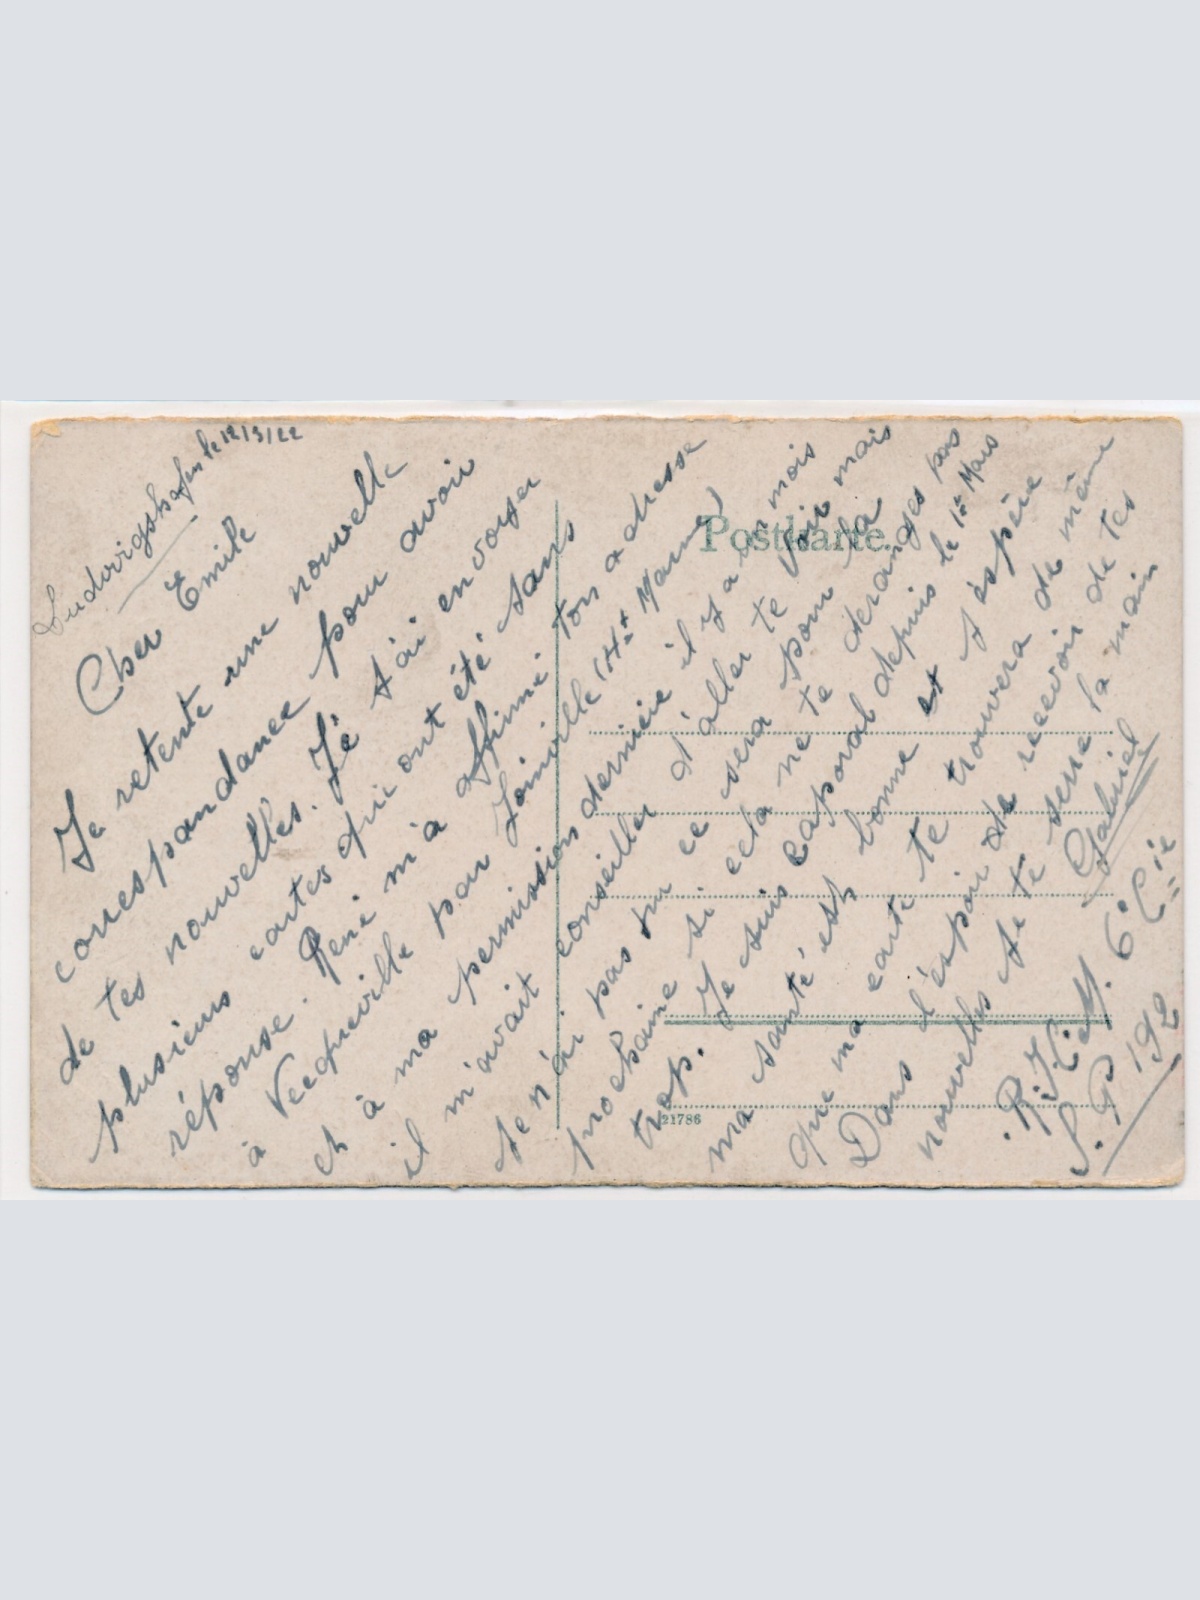 Ludwigshafen le 12/3/22
Cher Emile
Je retente une nouvelle
correspandance pour avoir
de tes nouvelles. Je t'ai envoyer
plusieurs cartes qui ont été sans
réponse. René m'a affirmé ton adresse
à Vecqueville par Joinville (Hte Marne)
et à ma permission dernière il y a un mois
il m'avait conseiller d'aller te voir mais
je n'ai pas pu ce sera pour la
prochaine si cela ne te déranges pas
trop. Je suis caporal depuis le 1er Mars
ma santé est bonne et j'éspère
que ma carte te trouvera de même
Dans l'éspoir de recevoir de tes
nouvelles je te serre la main
Gabriel
6e Cie
S. P 192
Postkarte.
21786